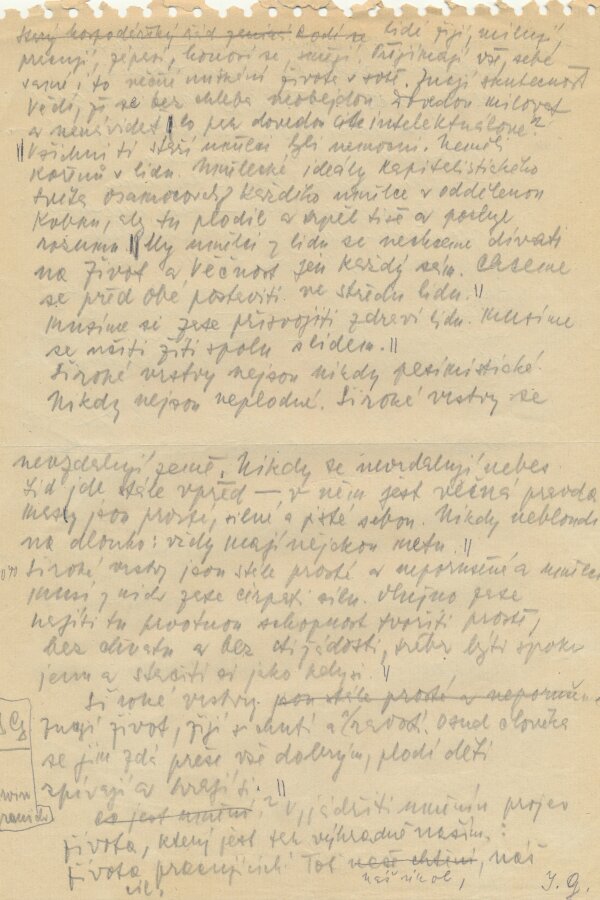 lidé žijí, milují,
pracují, zápasí, honosí se, smějí. Přijímají vše, sebe
samé i to věčné umění života v sobě. Znají skutečnost
Vědí, že se bez chleba neobejdou. Dovedou milovat
a nenávidět. Co pak dovedou intelektuálové?
"Všichni ti staří umělci byli nemocní. Neměli
kořenů v lidu. Umělecké ideály kapitalistického
každého umělce v oddělenou
kobku, aby tu plodil a trpěl tiše a
rozumu." My umělci z lidu se nechceme dívati
na život a Věčnost jen každý sám. Chceme
se před obé postaviti ve středu lidu."
Musíme si zase přisvojiti zdraví lidu. Musíme
se učiti žíti spolu s lidem."
Široké vrstvy nejsou nikdy pesimistické.
Nikdy nejsou neplodné. Široké vrstvy se
nevzdalují země. Nikdy se nevzdalují nebes
Lid jde stále vpřed — v něm jest věčná pravda
Masy jsou prosté, silné a jisté sebou. Nikdy nebloudí
na dlouho: vždy mají nějakou metu."
Široké vrstvy jsou stále prosté a neporušené a umělec
musí z nich zase čerpati sílu. Nutno zase
najíti tu prvotnou schopnost tvořiti prostě,
bez divatu a bez ctižádosti, třeba býti spoko
jenu a stačiti si jako kdysi."
Široké vrstvy jsou stále prosté a neporuše
znají život, žijí s chutí a žravostí. Osud člověka
se jim zdá přese vše dobrým, plodí děti
zpívají a
co jest umění? Vyjádřiti uměním projev
života, který jest tak výhradně naším:
života pracujících! Toť náš chtění, náš
náš úkol,
cíl.
J. G.